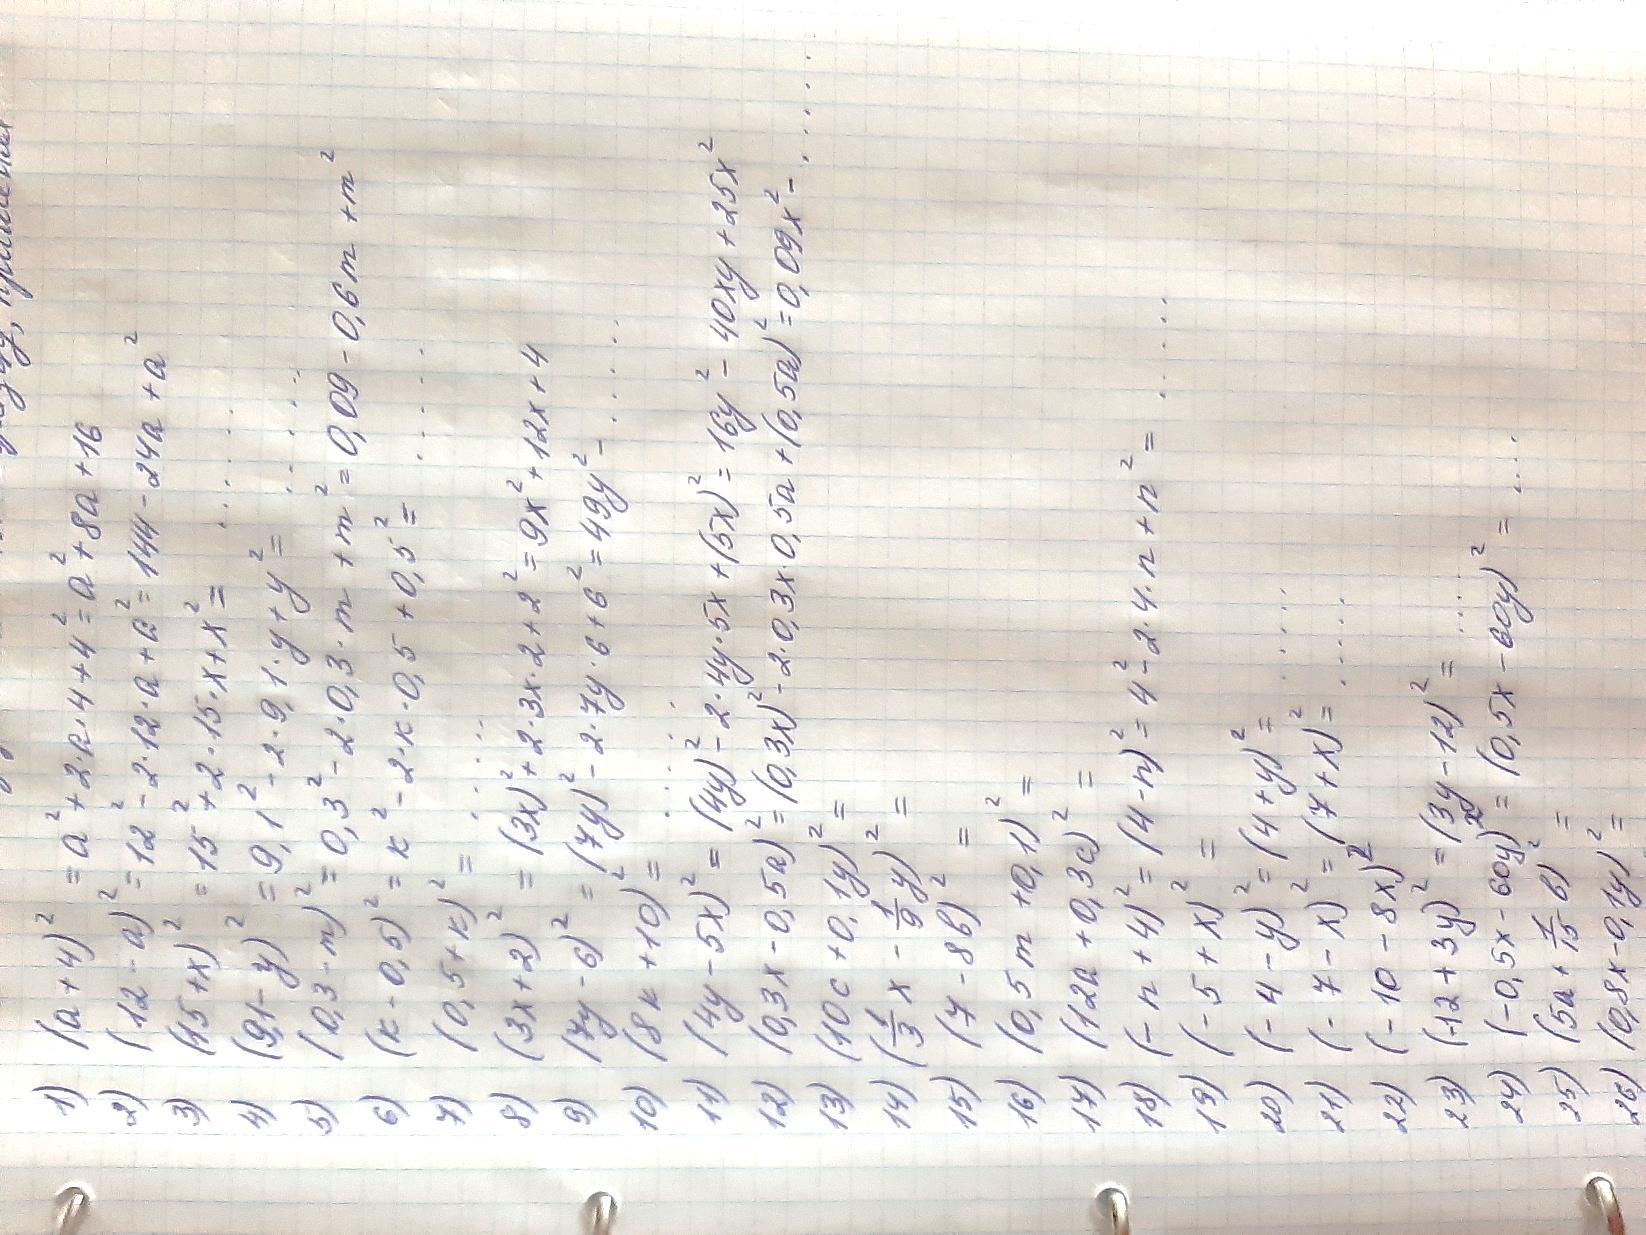 1) (a+4)² = a²+2·a·4+4² = a²+8a+16
2) (12-a)² = 12²-2·12·a+a² = 144-24a+a²
3) (15+x)² = 15²+2·15·x+x² = .....
4) (9,1-y)² = 9,1²-2·9,1·y+y² = ....
5) (0,3-m)² = 0,3²-2·0,3·m+m² = 0,09-0,6m+m²
6) (к-0,5)² = к²-2·к·0,5+0,5² = ....
7) (0,5+к)² = ....
8) (3x+2)² = (3x)²+2·3x·2+2² = 9x²+12x+4
9) (7y-6)² = (7y)²-2·7y·6+6² = 49y²-.....
10) (8к+10)² = ....
11) (4y-5x)² = (4y)²-2·4y·5x+(5x)² = 16y²-40xy+25x²
12) (0,3x-0,5a)² = (0,3x)²-2·0,3x·0,5a+(0,5a)² = 0,09x²-....
13) (10c+0,1y)² =
14) (1/3 x - 1/9 y)² =
15) (7-8в)² =
16) (0,5m+0,1)² =
17) (12a+0,3c)² =
18) (-n+4)² = (4-n)² = 4²-2·4·n+n² = ....
19) (-5+x)² =
20) (-4-y)² = (4+y)² = ....
21) (-7-x)² = (7+x)² = ....
22) (-10-8x)²
23) (-12+3y)² = (3y-12)² = ....
24) (-0,5x-60y)² = (0,5x-60y)² = ....
25) (5a+1/15 в)² =
26) (0,8x-0,1y)² =